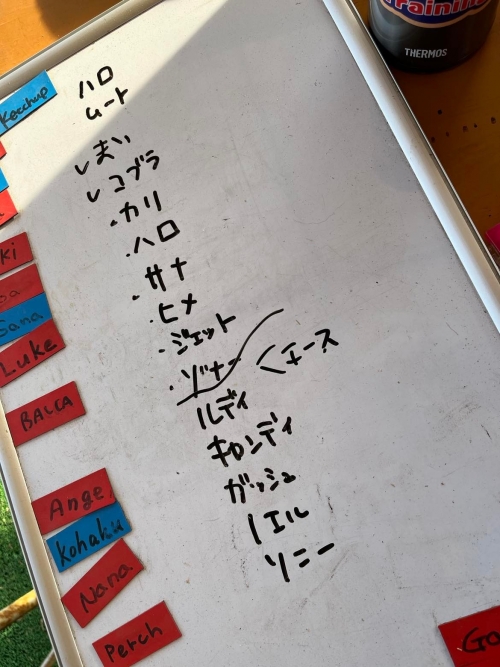 Training
THERMOS
Ketchup
ハロ
ムート
レ まい
レ コブラ
・カリ
・ハロ
・サナ
・ヒメ
・ジェット
・ゾナー
<エース
ルディ
キャンディ
ガッシュ
ノエル
ソニー
ki
Sana
Luke
BALLA
Ange
Kohaku
Nana
Perch
Go